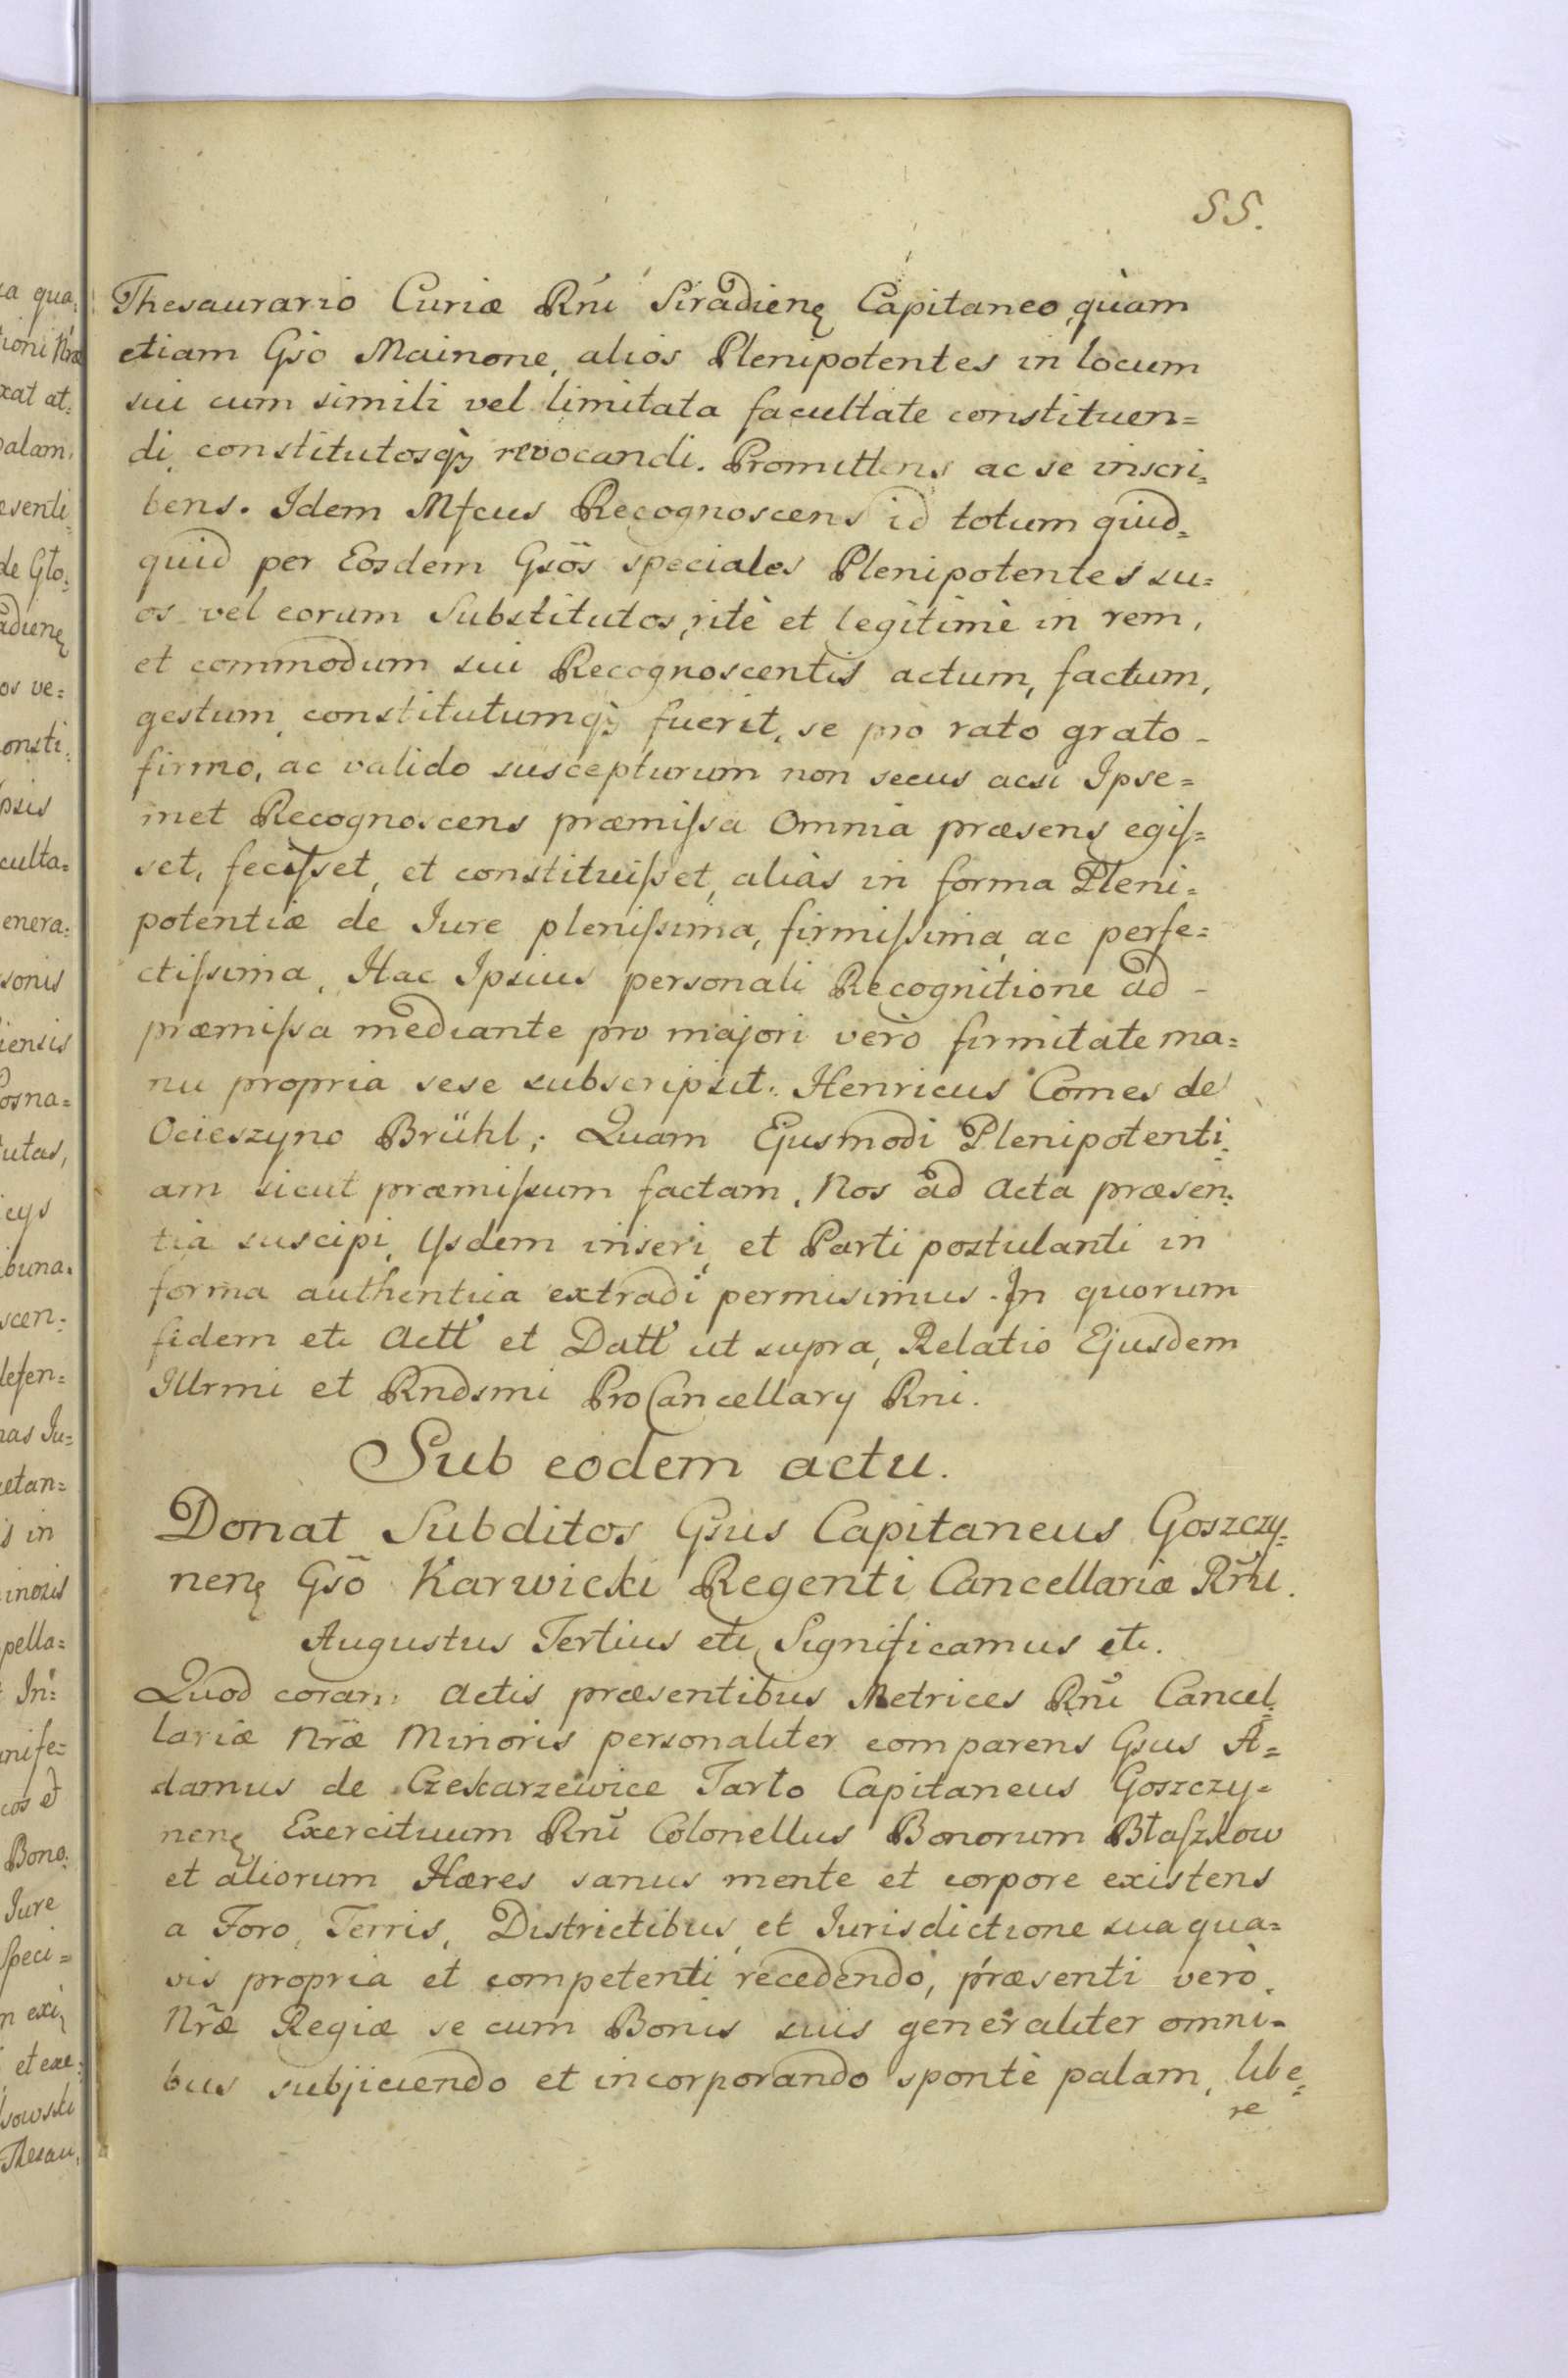 55.
Thesaurario Curiæ Rńi Siradienę Capitaneo, quàm
etiam Gsò Mainone, alios Plenipotentes in locum
sui cum simili vel limitata facultate constituen=
di, constitutosq; revocandi. Promittens ac se inscri=
bens. Idem Mfcus Recognoscens id totum quid=
quid per Eosdem Gsös speciales Plenipotentes su=
os vel eorum Substitutos, ritè et legitimè in rem,
et commodum sui Recognoscentis actum, factum,
gestum, constitutumq; fuerit, se pro rato grato -
firmo, ac valido suscepturum non secus acsi Ipse=
met Recognoscens præmiſsa Omnia præsenę egiſ=
set, feciſset, et constituiſset, aliàs in forma Pleni=
potentiæ de Jure pleniſsima, firmiſsima, ac perfe=
ctiſsima, Hac Ipsius personali Recognitione ad -
præmiſsa mediante pro majori verò firmitate ma=
nu propria sese subscripsit. Henricus Comes de
Ocieszyno Brühl; Quam Ejusmodi Plenipotenti=
am sicut præmiſsum factam, Nos ad Acta præsen=
tia suscipi, ysdem inseri, et Parti postulanti in
forma authentica extradi permisimus. In quorum
fidem etc Actt et Datt ut supra, Relatio Ejusdem
Illrmi et Rndsmi ProCancellary Rni.
Sub eodem actu.
Donat Subditos Gsus Capitaneus Goszczy=
nenę Gsõ Karwicki Regenti Cancellariæ Rñi.
Augustus Tertius etc Significamus etc.
Quod coram Actis præsentibus Metrices Rñi Cancel=
lariæ Nræ Minoris personaliter comparens Gsus A=
damus de Czekarzewice Tarło Capitaneus Goszczy=
nenę Exercituum Rñi Colonellus Bonorum Błaſzkow
et aliorum Hæres sanus mente et corpore existens
a Foro, Terris, Districtibus, et Jurisdictione sua qua=
vis propria et competenti recedendo, præsenti verò
Nræ Regiæ se cum Bonis suis generaliter omni=
bus subjiciendo et incorporando spontè palam, libe=
re